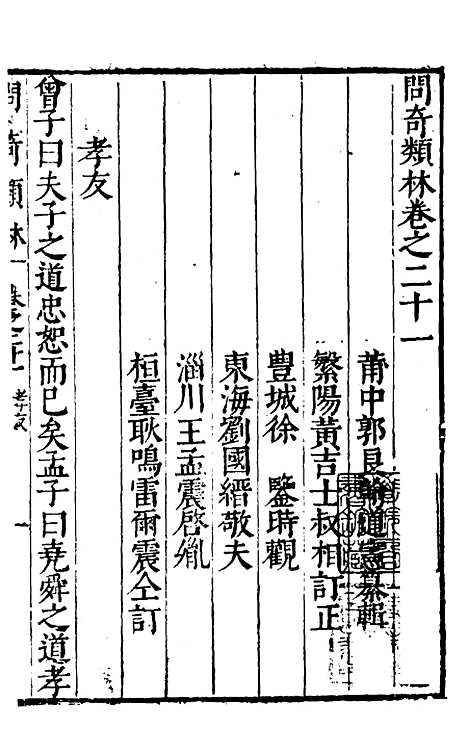 問奇類林卷之二十一
莆中郭良翰道憲纂輯
繁陽黃吉士叔相訂正
豐城徐鑒時觀
東海劉國縉敬夫
淄川王孟震啓胤
桓臺耿鳴雷爾震仝訂
孝友
曾子曰夫子之道忠恕而已矣孟子曰堯舜之道孝
問奇類林 卷之廿一 孝友 一